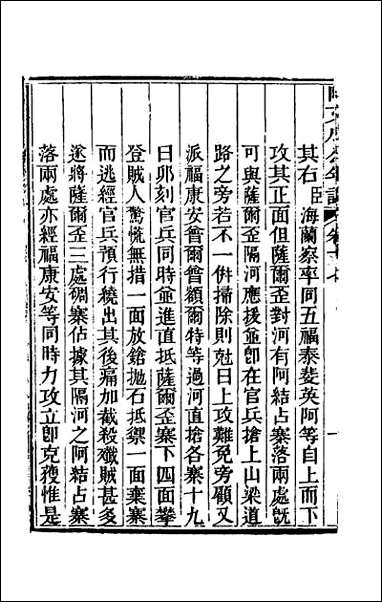 阿文成公年譜 卷十七
其右臣海蘭察率同五福泰斐英阿等自上而下
攻其正面但薩爾歪對河有阿結占寨落兩處旣
可與薩爾歪隔河應援並卽在官兵搶上山梁道
路之旁若不一併掃除則尅日上攻難免旁顧又
派福康安曾曾額爾特等過河直搶各寨十九
日卯刻官兵同時並進直抵薩爾歪寨下四面攀
登賊人驚慌無措一面放鎗拋石抵禦一面棄寨
而逃經官兵預行繞出其後痛加截殺殲賊甚多
遂將薩爾歪三處碉寨佔據其隔河之阿結占寨
落兩處亦經福康安等同時力攻立卽克獲惟是